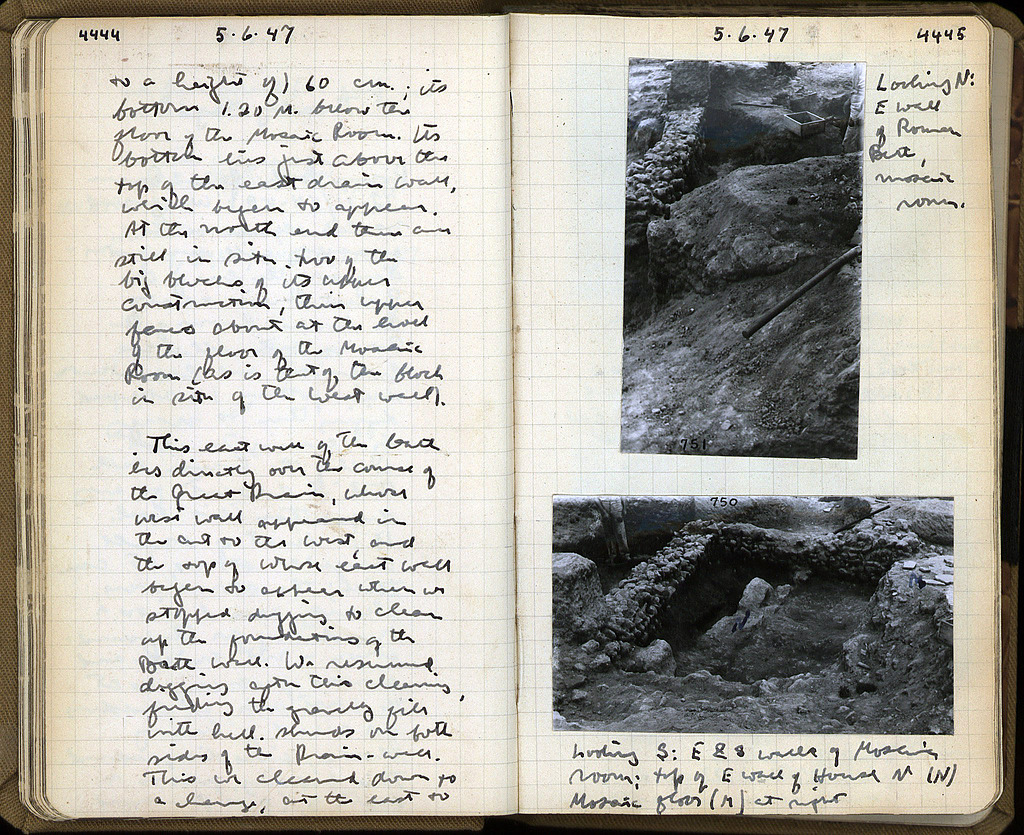 4444
5·6·47
to a height of) 60 cm.; its
bottom 1.20 M. below the
floor of the Mosaic Room. Its
bottom lies just above the
top of the east drain wall,
which began to appear.
At the north end there are
still in situ two of the
big blocks of its upper
construction, their upper
faces about at the level
of the floor of the Mosaic
Room (as is that of the block
in situ of the west wall).
This east wall of the bath
lies directly over the course of
the Great Drain, whose
west wall appeared in
the cut to the west, and
the top of whose east wall
began to appear when we
stopped digging to clean
up the foundations of the
Bath wall. We resumed
digging after this cleaning,
finding the gravelly fill
with hell. sherds on both
sides of the Drain-wall.
This we cleaned down to
a change, at the east to
5·6·47
4445
Looking N:
E wall
of Roman
Bath,
mosaic
room.
751
750
N
Looking S: E & S walls of Mosaic
room; top of E wall of House N (N)
Mosaic floor (M) at right